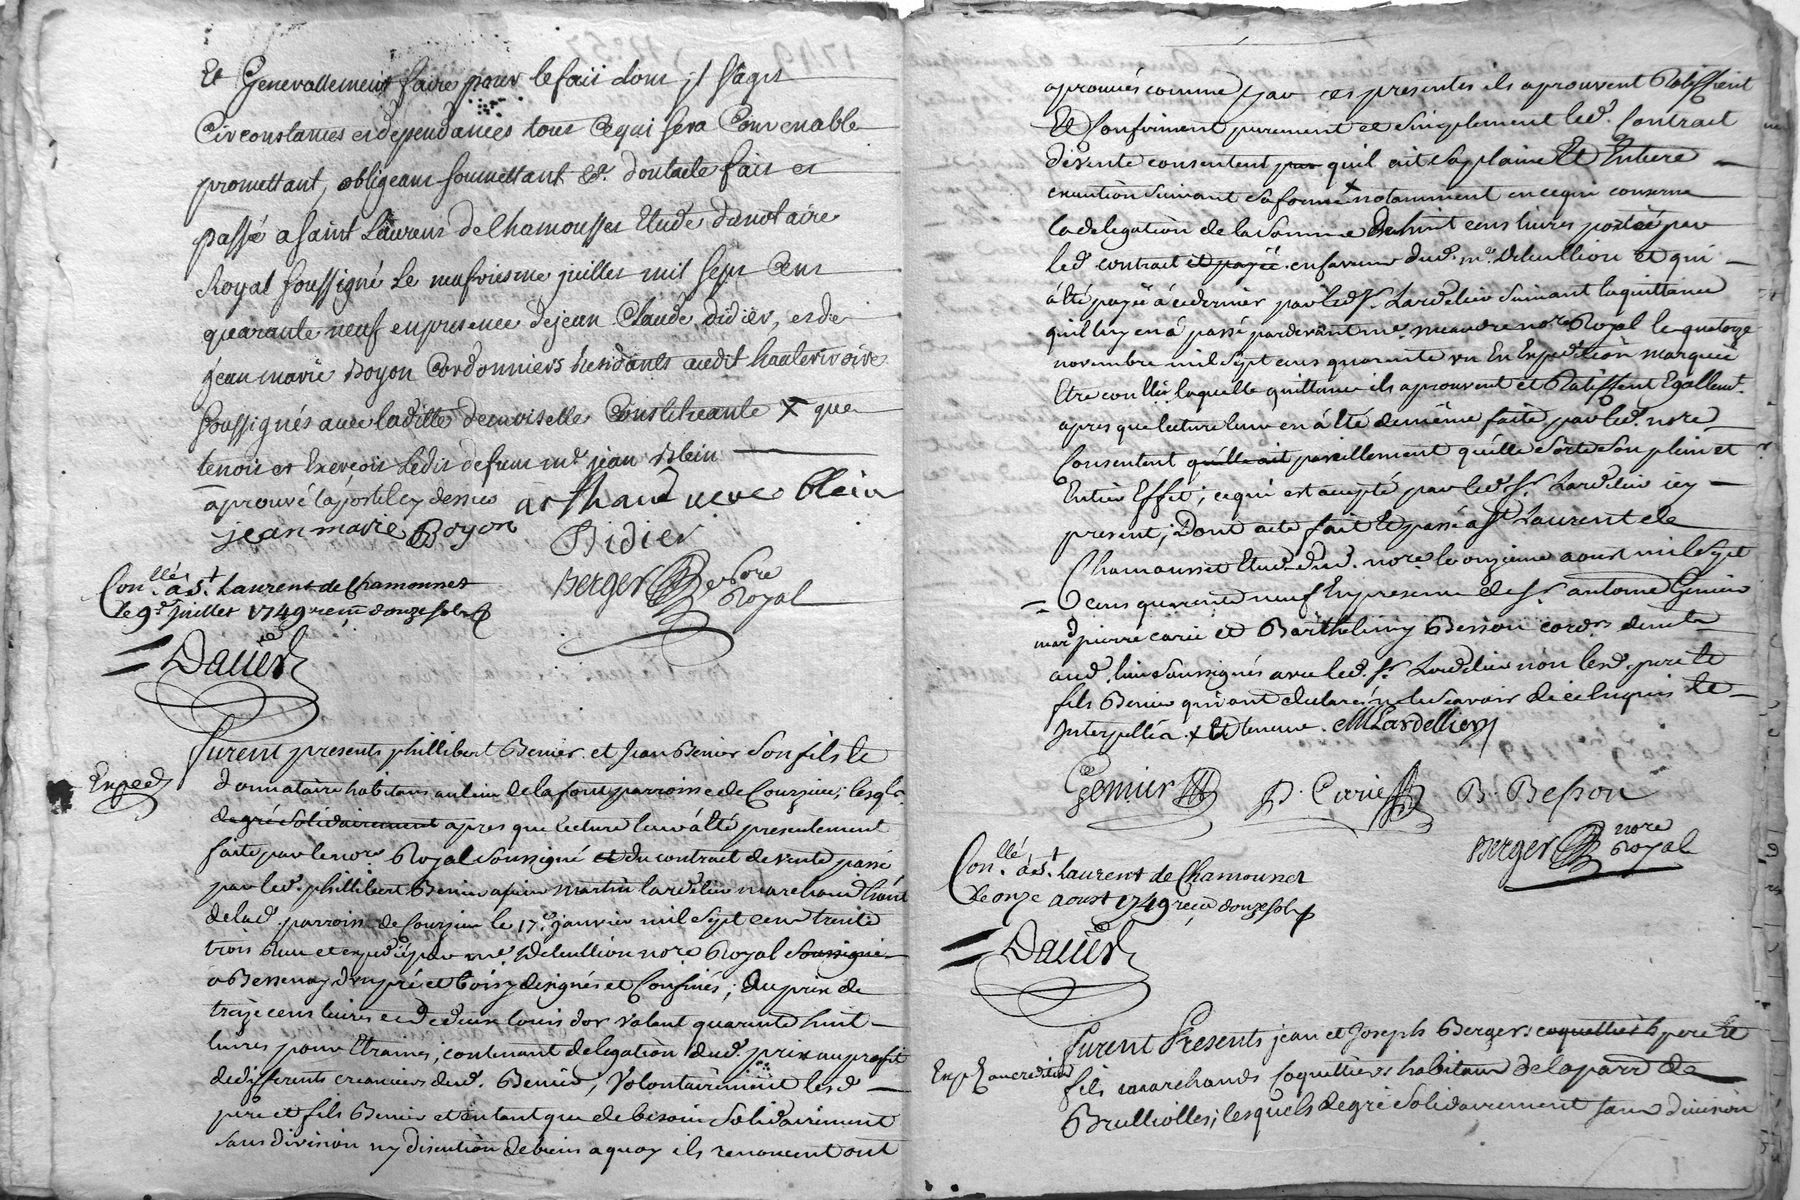 Et Generallement faire pour le fait dont jl sagit
Circonstances et dependances tout Cequi sera Convenable
promettant, obligeant soumettant &c. dontacte fait et
passé a saint Laurent de Chamousset Etude dunotaire
Royal soussigné Le neufviesme juillet mil sept Cent
quarante neuf enpresence dejean Claude didier, et de
jean marie Boyon Cordonniers Residants audit hauterivoire
soussignés avec laditte demoiselle Constituante x que
tenoit et Exerçoit Ledit defunt me. jean Blein
aprouvé la postil cy dessus arthaud veuve blein
jean marie Boyon Didier
Berger nore Royal
Con.llé a St Laurent de Chamousset
le 9e Juillet 1749 reçu douze sols
Dauier
Furent presents phillibert Benier et Jean Benier son fils le
Exped
donnataire habitans au lieu de la font parroisse de Courzieu; lesqls.
de gré solidairement apres que lecture leur a été presentement
faite par le nore Royal soussigné et du contract de vente passé
par led. phillibert Benier a sieur martin lardelier marchand
de lad. parroisse de Courzieu le 17e. janvier mil sept cent trente
trois Reçu et expedié par me. Delullion nore Royal soussigné
a Bessenay d'un pré et bois y designés et Confinés; du prix de
treize cens livres et de deux louis dor valant quarante huit
livres pour Etraines, contenant delegation dud. prix au profit
de differents creanciers dud. Benier, volontairement lesd
pere et fils Benier et entant que de besoin solidairement
sans division ny discution de biens a quoy ils renoncent ont
aprouvés comme par ces presentes ils aprouvent Ratiffient
Et Confirment purement et simplement led. Contract
de vente consentent par quil ait sa plaine Et Entiere
execution suivant sa forme x notamment en cequi conserne
la delegation de la somme de huit cens livres portée par
led contract et payée en faveur dud. me. Delullion et qui
a été payée à ce dernier par led sr. Lardelier suivant la quittance
quil luy en a passé pardevant me. meandre nore Royal le quatorze
novembre mil sept cens quarante un En Expedition marquée
Etre conllée laquelle quittance ils aprouvent et Ratiffient Egallemt.
apres que lecture leur en a été de même faite par led. nore
Consentent quelle ait pareillement quelle sorte son plein et
Entier Effet; cequi est accepté par led sr. Lardelier icy
present; Dont acte fait et passé a st Laurent de
Chamousset Etude dud. nore le onzieme aoust mil sept
cens quarante neuf En presence de sr. antoine Genier
mard pierre carié et Barthelemy Besson cordrs demt
aud. lieu soussignés avec led. sr. Lardelier non lesd. pere et
fils Benier qui ont declaré ne le scavoir de ce Enquis et
Interpellés. x Et teneur. MLardellier
Genier P. Carrié B. Besson
Berger nore Royal
Con.llé a St. laurent de Chamousset
le onze aoust 1749 reçu douze sols
Dauier
Furent Presents jean et Joseph Berger coquettiers pere Et
fils marchands Coquettiers habitans de la parr de
Brulliolles; lesquels de gré solidairement sans division